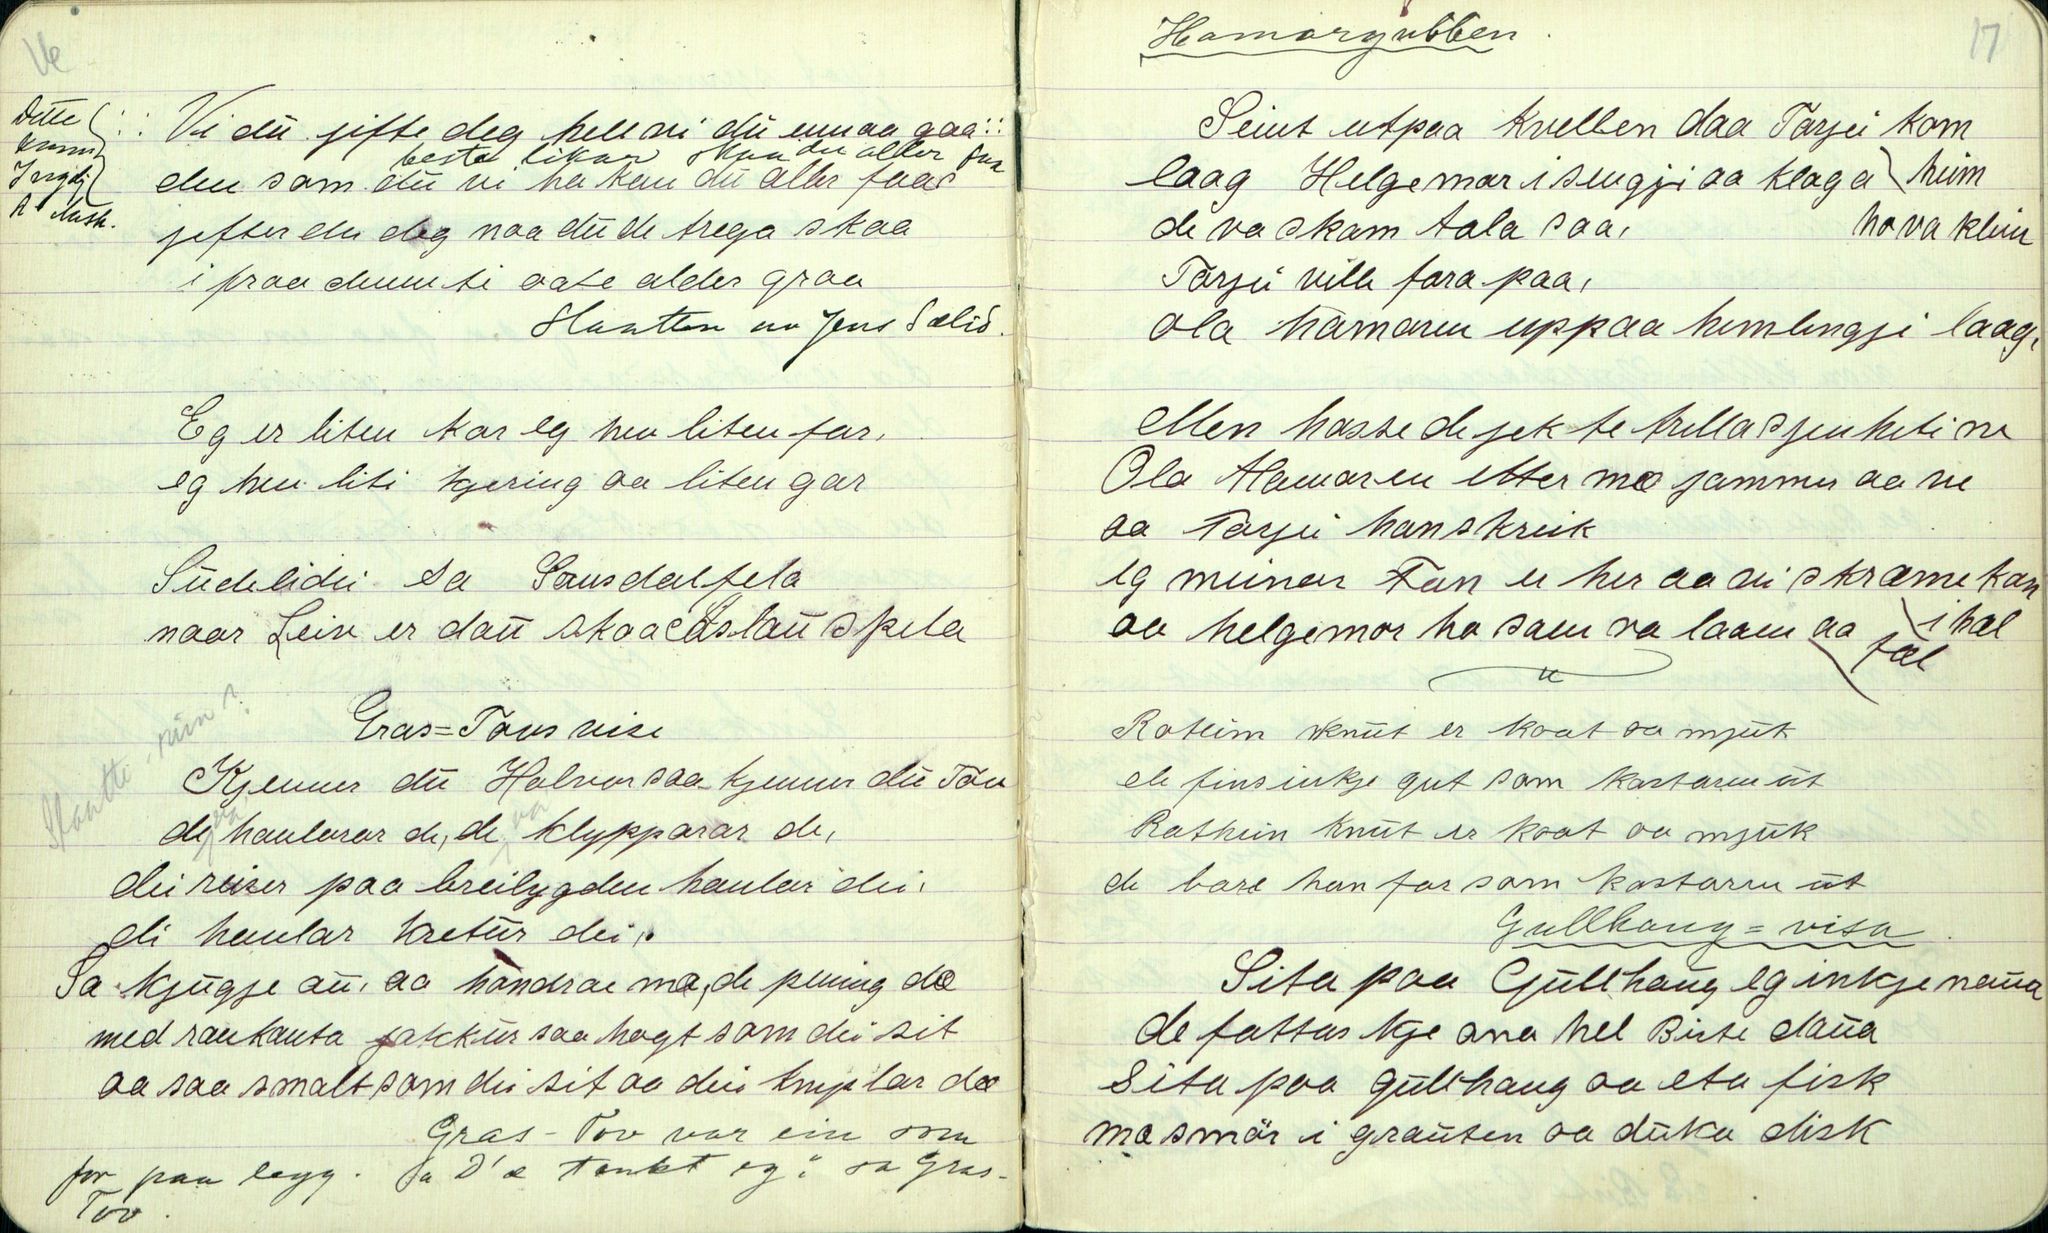 16
Dette
kunne
Ingebj.
A. Aash.
Vi dü jifte deg hell vi dü unaa gaa
beste likar skaa du alder faa
den som dü vi ha kan dü aller faa
jefter du deg naa dü de trega skaa
i fraa denn ti aate alder graa
Slaatten av Jens Sælid.
Eg er liten kar eg hev liten far,
eg hev liti kjering aa liten gar
Südelidei sa Sousdalfela
naar Leiv er daü skaa Aslaü spela
Gras=Tovs vise
Slaatte,
Kjenner dü Halvor saa kjenner dü Tov
de hanlarar de, de klypparar de,
dei reiser paa breibygden hanlar dei,
di hanlar kretür dei,
Sa kjügje aü, aa handrae mæ, de pening dæ
med rankanta jakkür saa hogt som dei sit
aa saa smalt som dei sit aa dei kniplar dæ
Gras-Tov var ein som
for paa legg. Sa "D'æ tenkt eg" sa Gras-
Tov.
17
Hamargubben.
Seint utpaa kvellen daa Tarjei kom
laag Helgemor i sengji aa klaga heim
de va skam tala saa, ho va klein
Tarjei ville fara paa,
Ola hamaren uppaa hemlingji laag,
Men hasse de jek te trilla sjenheti ne
Ola Hamaren etter mæ jammer aa ve
aa Tarjei han skreik
eg meiner Fan er her aa dei skræme kan
aa helgemor ho saen va laaen aa i hæl
fæl
Rotheim Knüt er kaat aa mjük
de fins inkje gut som kastaren üt
Rotheim Knüt er kaat aa mjük
de bare han far som kastaren üt
Gullhaug=visa
Sita paa Güllhaüg eg inkje naüa
de fattas kje ana hel Birte daüa
Sita paa güllhaug aa eta fisk
mæ smör i graüten aa düka disk